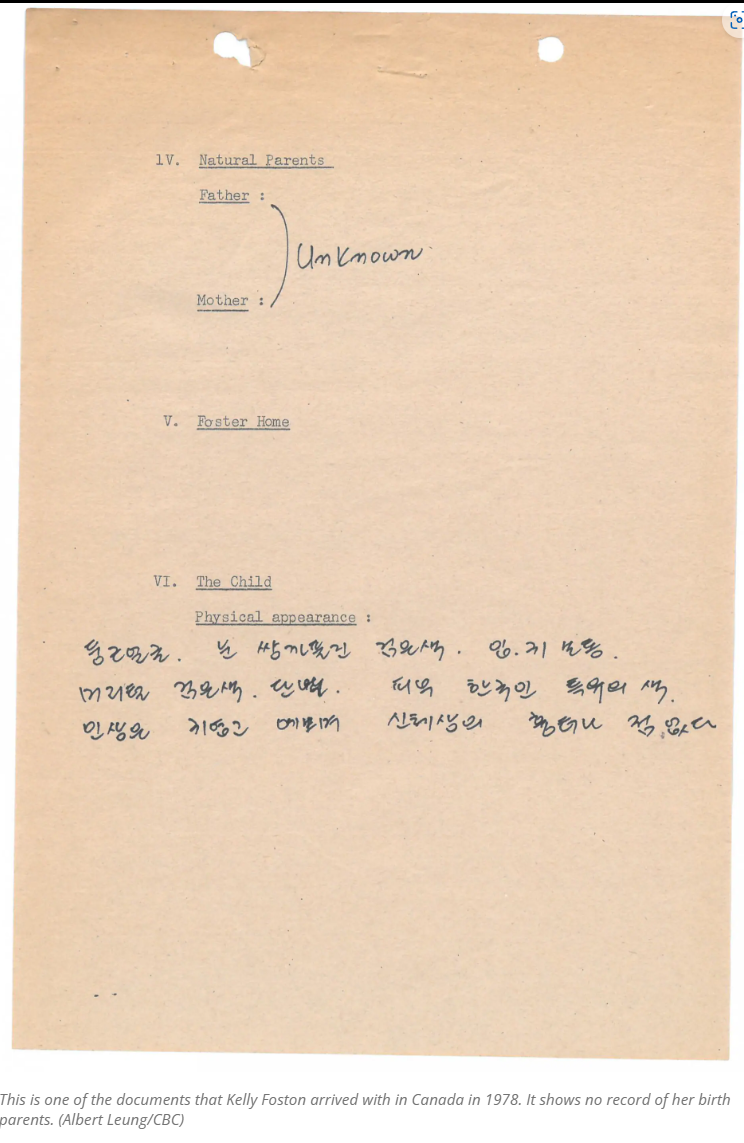 IV. Natural Parents
Father :
Unknown
Mother :
V. Foster Home
VI. The Child
Physical appearance :
둥근얼굴. 눈 쌍까풀진 검은색. 입.귀 보통.
머리털 검은색. 단발. 피부 한국인 특유의 색.
인상은 귀엽고 예쁘며 신체상의 흉터나 점 없다
This is one of the documents that Kelly Foston arrived with in Canada in 1978. It shows no record of her birth
parents. (Albert Leung/CBC)